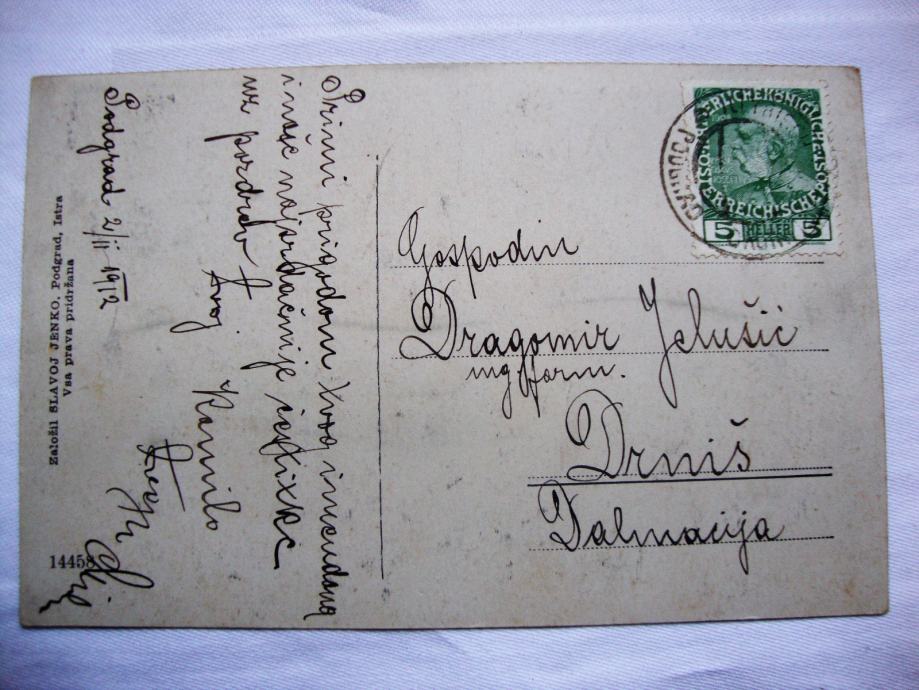 Podgrad 2/II 1912
Primi prigodom tvog imendana
i moje najsrdačnije čestitke
uz pozdrav tvoj
Kamilo
Gospodin
Dragomir Jelušić
mg farm.
Drniš
Dalmacija
KAISERLICHE KÖNIGLICHE
ÖSTERREICHISCHE POST
5 HELLER 5
PODGRAD
Založil SLAVOJ JENKO, Podgrad, Istra
Vsa prava pridržana
14458